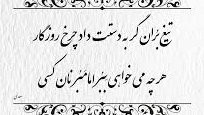 تیغ بران گر به دستت داد چرخ روزگار
هر چه می خواهی ببر اما مبر نان کسی